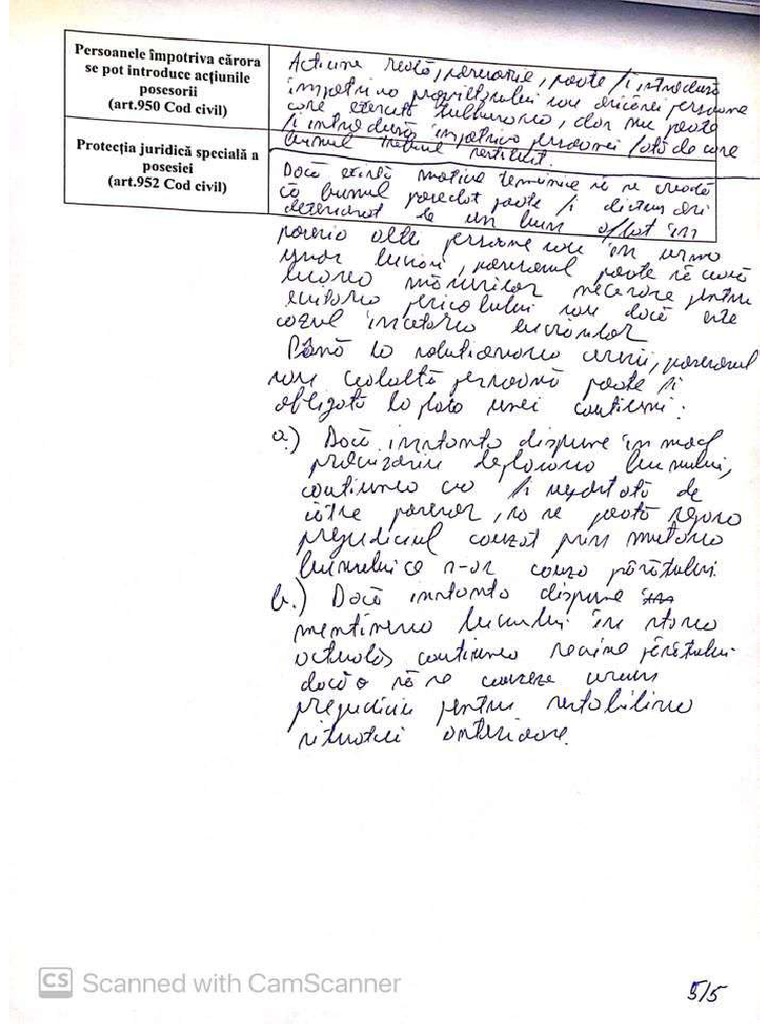 Persoanele împotriva cărora
se pot introduce acțiunile
posesorii
(art.950 Cod civil)
Actiune posesorie, poate fi introdusă
împotriva proprietarului sau oricărei persoane
care exercită tulburarea, dar nu poate
fi introdusă împotriva persoanei față de care
bunul trebuie restituit.
Protecția juridică specială a
posesiei
(art.952 Cod civil)
Dacă există motive temeinice să se creadă
că bunul posedat poate fi distrus ori
deteriorat de un bun aflat în
posesia altei persoane sau în urma
unor lucrări, posesorul poate să ceară
luarea măsurilor necesare pentru
evitarea pericolului sau dacă este
cazul încetarea lucrărilor
Până la soluționarea cererii, posesorul
sau cealaltă persoană poate fi
obligată la plata unei cautiuni:
a.) Dacă instanta dispune în mod
provizoriu deplasarea bunului,
cautiunea va fi de
către posesor, sa se poată repara
prejudiciul cauzat prin mutarea
bunului ce s-ar cauza pârâtului.
b.) Dacă instanta dispune
mentinerea bunului în starea
actuală, cautiunea revine pârâtului
dacă o să se cauzeze
prejudicii pentru restabilirea
situatiei anterioare.
CS Scanned with CamScanner
5/5